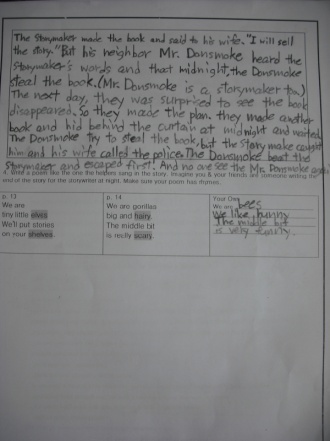 The Storymaker made the book and said to his wife. "I will sell
the story." But his neighbor Mr. Donsmoke heard the
Storymaker's words and that midnight, the Donsmoke
steal the book. (Mr. Donsmoke is a storymaker too.)
The next day, they was surprised to see the book
disappeared. So they made the plan. they made another
book and hid behind the curtain at midnight and waited.
The Donsmoke try to steal the book, but the story make caught
him and his wife called the police. The Donsmoke beat the
Storymaker and escaped first. And no one see the Mr. Donsmoke again
4. Write a poem like the one the helpers sang in the story. Imagine you & your friends are elves writing the
end of the story for the storywriter at night. Make sure your poem has rhymes.
p. 13
We are
tiny little elves
We'll put stories
on your shelves.
p. 14
We are gorillas
big and hairy.
The middle bit
is really scary.
Your Own
We are bees
we like hunny
The middle bit
is very funny.